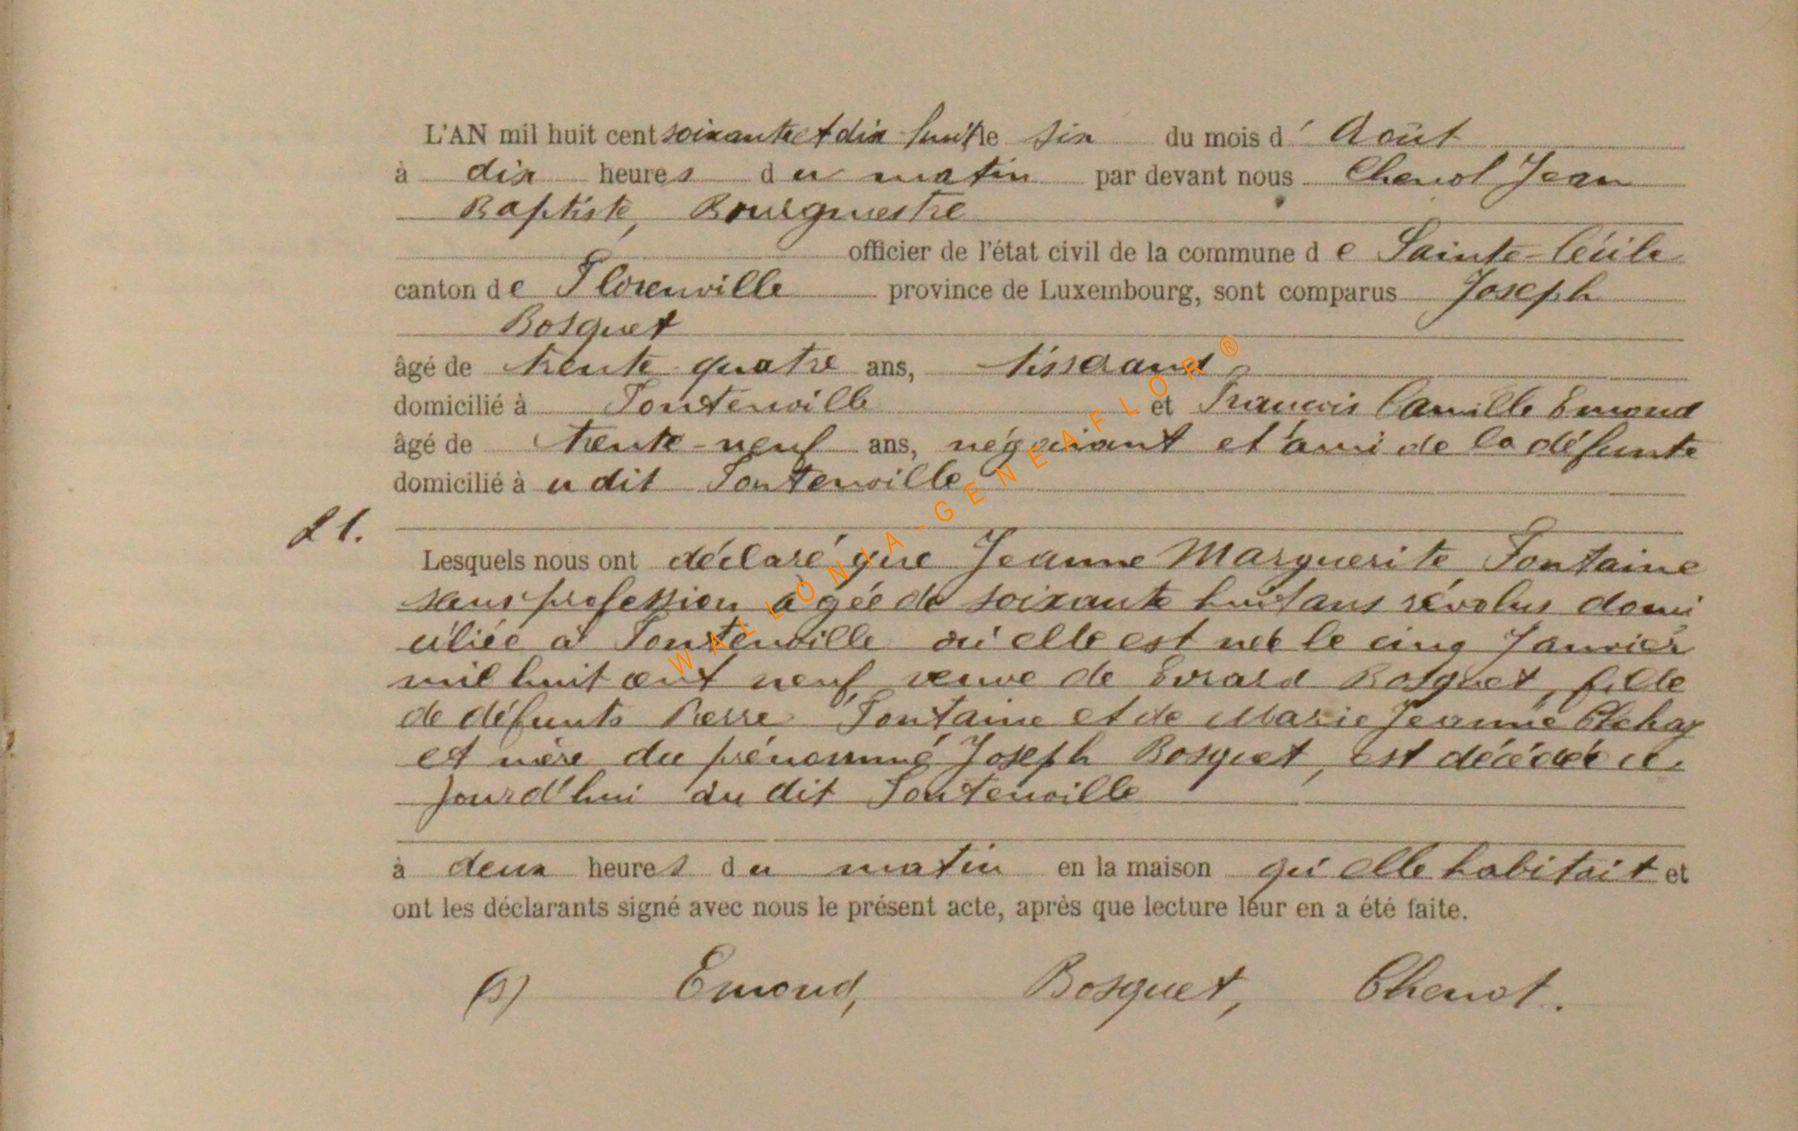 L'AN mil huit cent soixante et dix huit le six du mois d' Août
à dix heures du matin par devant nous Chenot Jean
Baptiste, Bourgmestre
officier de l'état civil de la commune de Sainte-Cécile
canton de Florenville province de Luxembourg, sont comparus Joseph
Bosquet
âgé de trente quatre ans, tisserand
domicilié à Fontenoille et François Camille Emond
âgé de trente-neuf ans, négociant et ami de la défunte
domicilié à u dit Fontenoille
21.
Lesquels nous ont déclaré que Jeanne Marguerite Fontaine
sans profession agée de soixante huit ans révolus domi
ciliée à Fontenoille où elle est née le cinq Janvier
mil huit cent neuf, veuve de Evrard Bosquet, fille
de défunts Pierre Fontaine et de Marie Jeanne
et mère du prénommé Joseph Bosquet, est décédée ce
jourd'hui au dit Fontenoille
à deux heures du matin en la maison qu'elle habitait et
ont les déclarants signé avec nous le présent acte, après que lecture leur en a été faite.
(s) Emond, Bosquet, Chenot.
WALLONIA-GENEAFLOR®